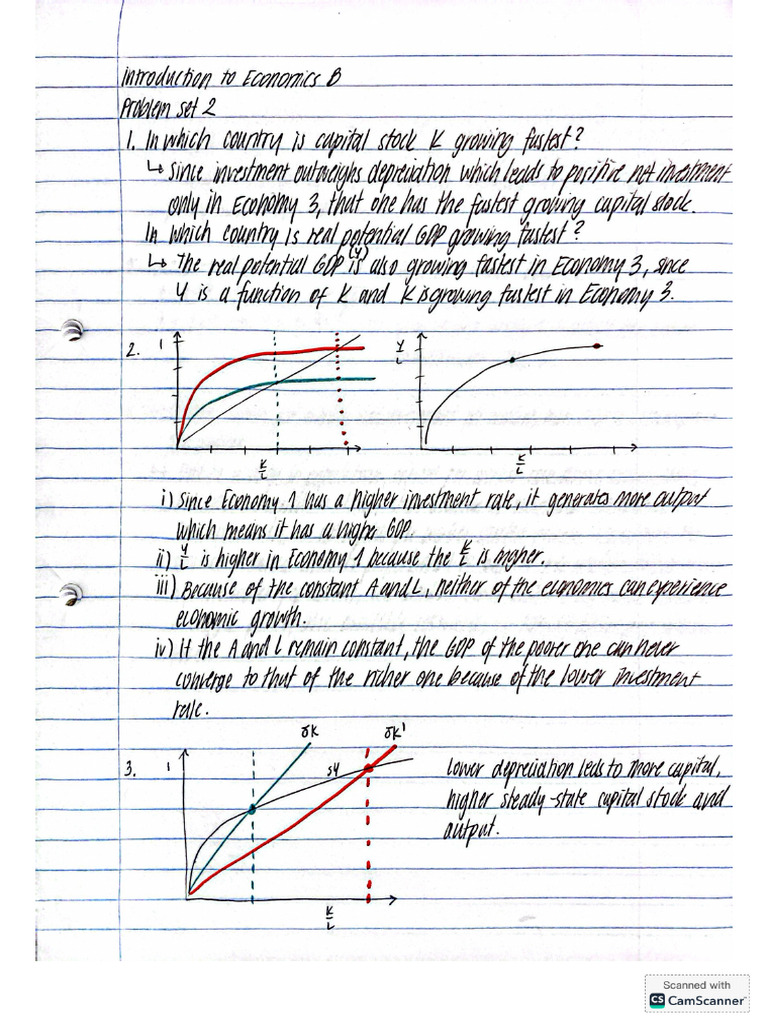 Introduction to Economics B
Problem set 2
1. In which country is capital stock K growing fastest?
↳ Since investment outweighs depreciation which leads to positive net investment
only in Economy 3, that one has the fastest growing capital stock.
In which country is real potential GDP growing fastest?
↳ The real potential GDP (Y) is also growing fastest in Economy 3, since
Y is a function of K and K is growing fastest in Economy 3.
2.
I
K/L
Y/L
K/L
i) Since Economy 1 has a higher investment rate, it generates more output
which means it has a higher GDP.
ii) Y/L is higher in Economy 1 because the K/L is higher.
iii) Because of the constant A and L, neither of the economies can experience
economic growth.
iv) If the A and L remain constant, the GDP of the poorer one can never
converge to that of the richer one because of the lower investment
rate.
3.
I
δK
δK'
sY
K/L
Lower depreciation leds to more capital,
higher steady-state capital stock and
output.
Scanned with
CS CamScanner